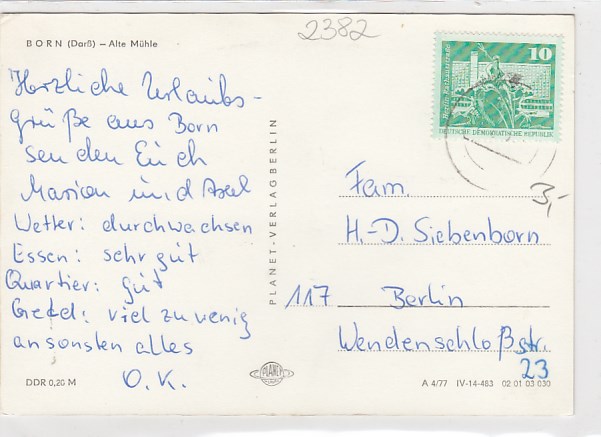 BORN (Darß) – Alte Mühle
2382
Herzliche Urlaubs-
grüße aus Born
senden Euch
Marion und Axel
Wetter: durchwachsen
Essen: sehr gut
Quartier: gut
Geld: viel zu wenig
ansonsten alles
O.K.
DDR 0,20 M
PLANET-VERLAG BERLIN
PLANET
10
Berlin, Rathausstraße
DEUTSCHE DEMOKRATISCHE REPUBLIK
3,-
Fam.
H.-D. Siebenborn
117 Berlin
Wendenschloßstr.
23
A 4/77 IV-14-483 02 01 03 030